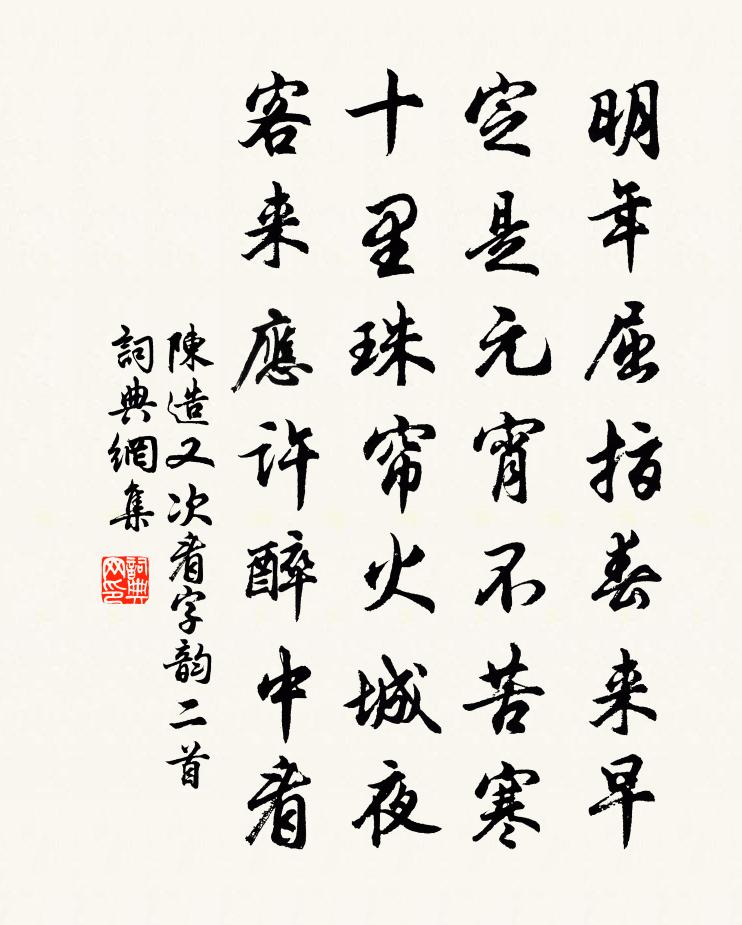 明年屈指春来早
定是元宵不苦寒
十里珠帘火城夜
客来應许醉中看
陳造又次看字韵二首
詞典網集
詞典网印